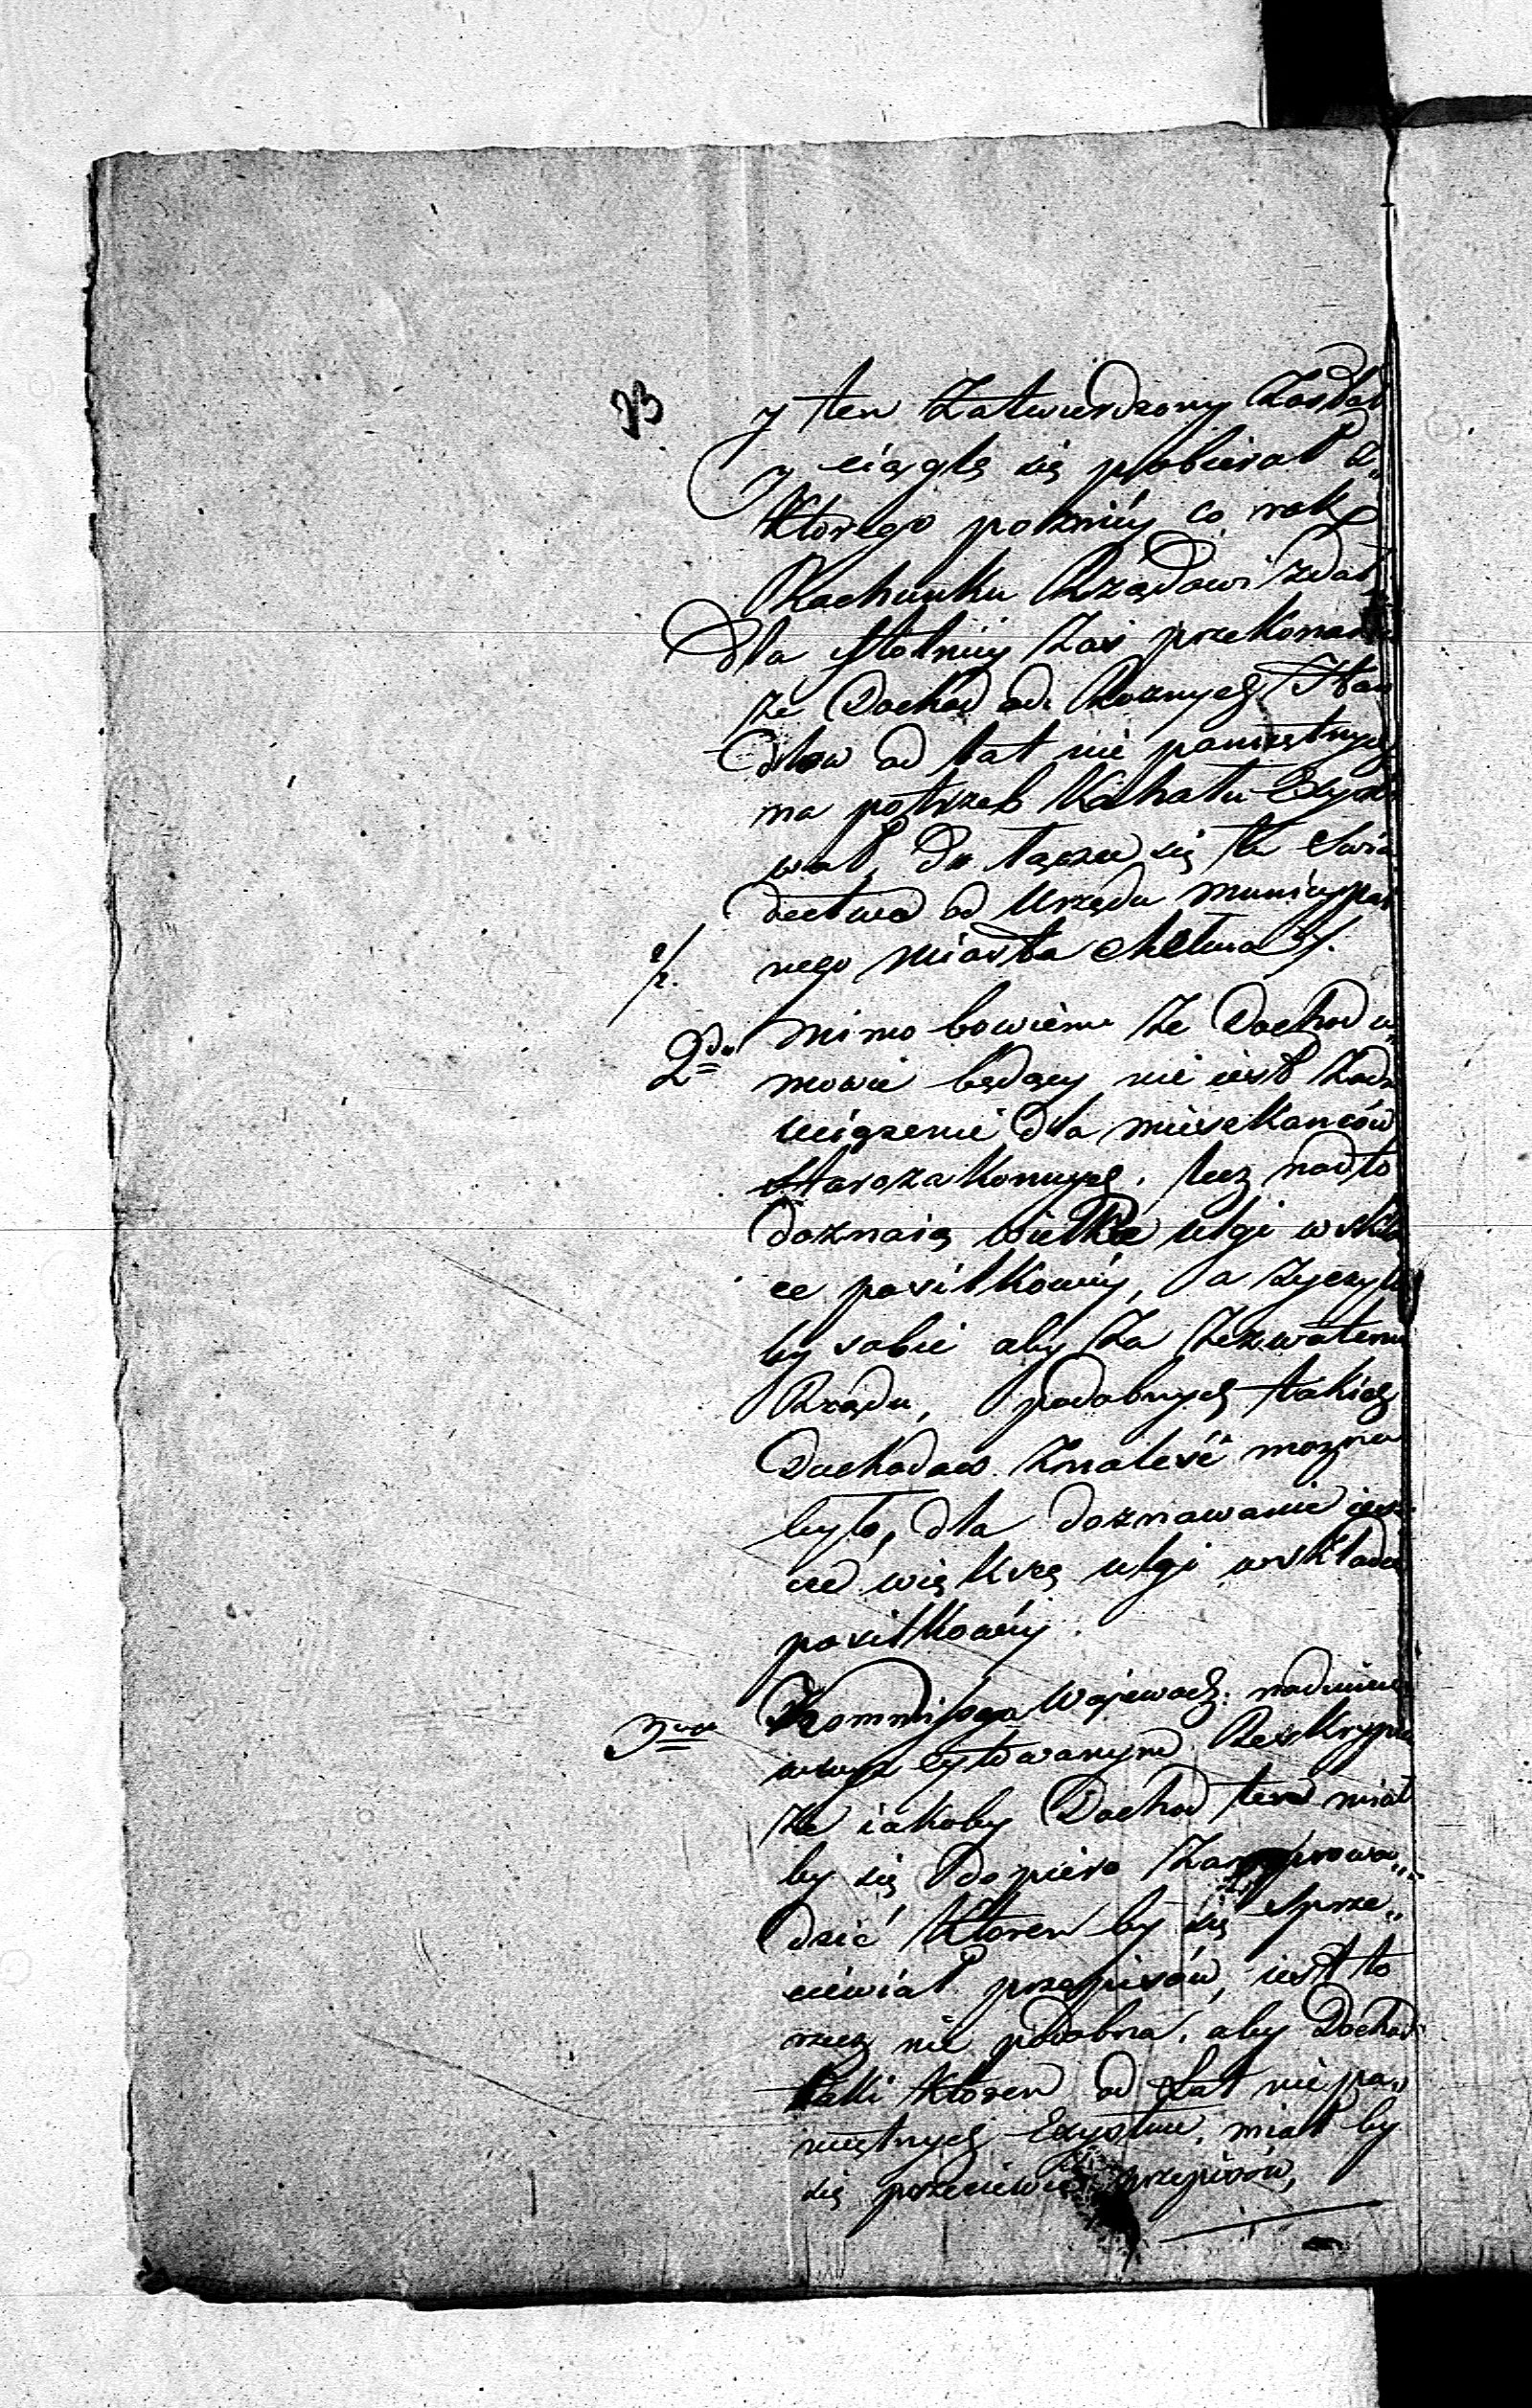 y ten Zatwierdzony Został
y ciągle się pobierał z„
Którego pozniéy co rok
Rachunku Rządowi zdał
dla Istotniéy Zaś przekonania
że Dochod od Roznych Han
dlow od lat nie pamiętnych
na potrzeb Kahału Exysto
wał, Do łącza się tu Swia
dectwo od Urzędu Municypal
nego Miasta Chełma ./.
./2.
2do Mimo bowiem że Dochod w
mowie będący nie iest Żadn
uciązenie dla mieszkancòw
Starozakonnych, lecz nadto
doznaią wielkie ulgi w skład
ce posiłkowéy, a życzyło
by sobie aby za zezwoleniem
Rządu, podobnych takich
Dochodow Znaleść mozna
było, dla doznawanie iesz
cze większę ulgi w składce
posiłkowéy.
3tio Kommissya Wojewodz: nadmienia
w wyz cytowanym Reskrypcie
że iakoby Dochod ten miał
by się dopiero Zaprowa„
dzić Ktoren by się Sprze„
ciwiał przepisòw, iest to
rzecz nie podobna, aby Dochod
taki Ktoren od Lat nie pa„
miętnych Exystuie, miał by
się przeciwić przepisòw,